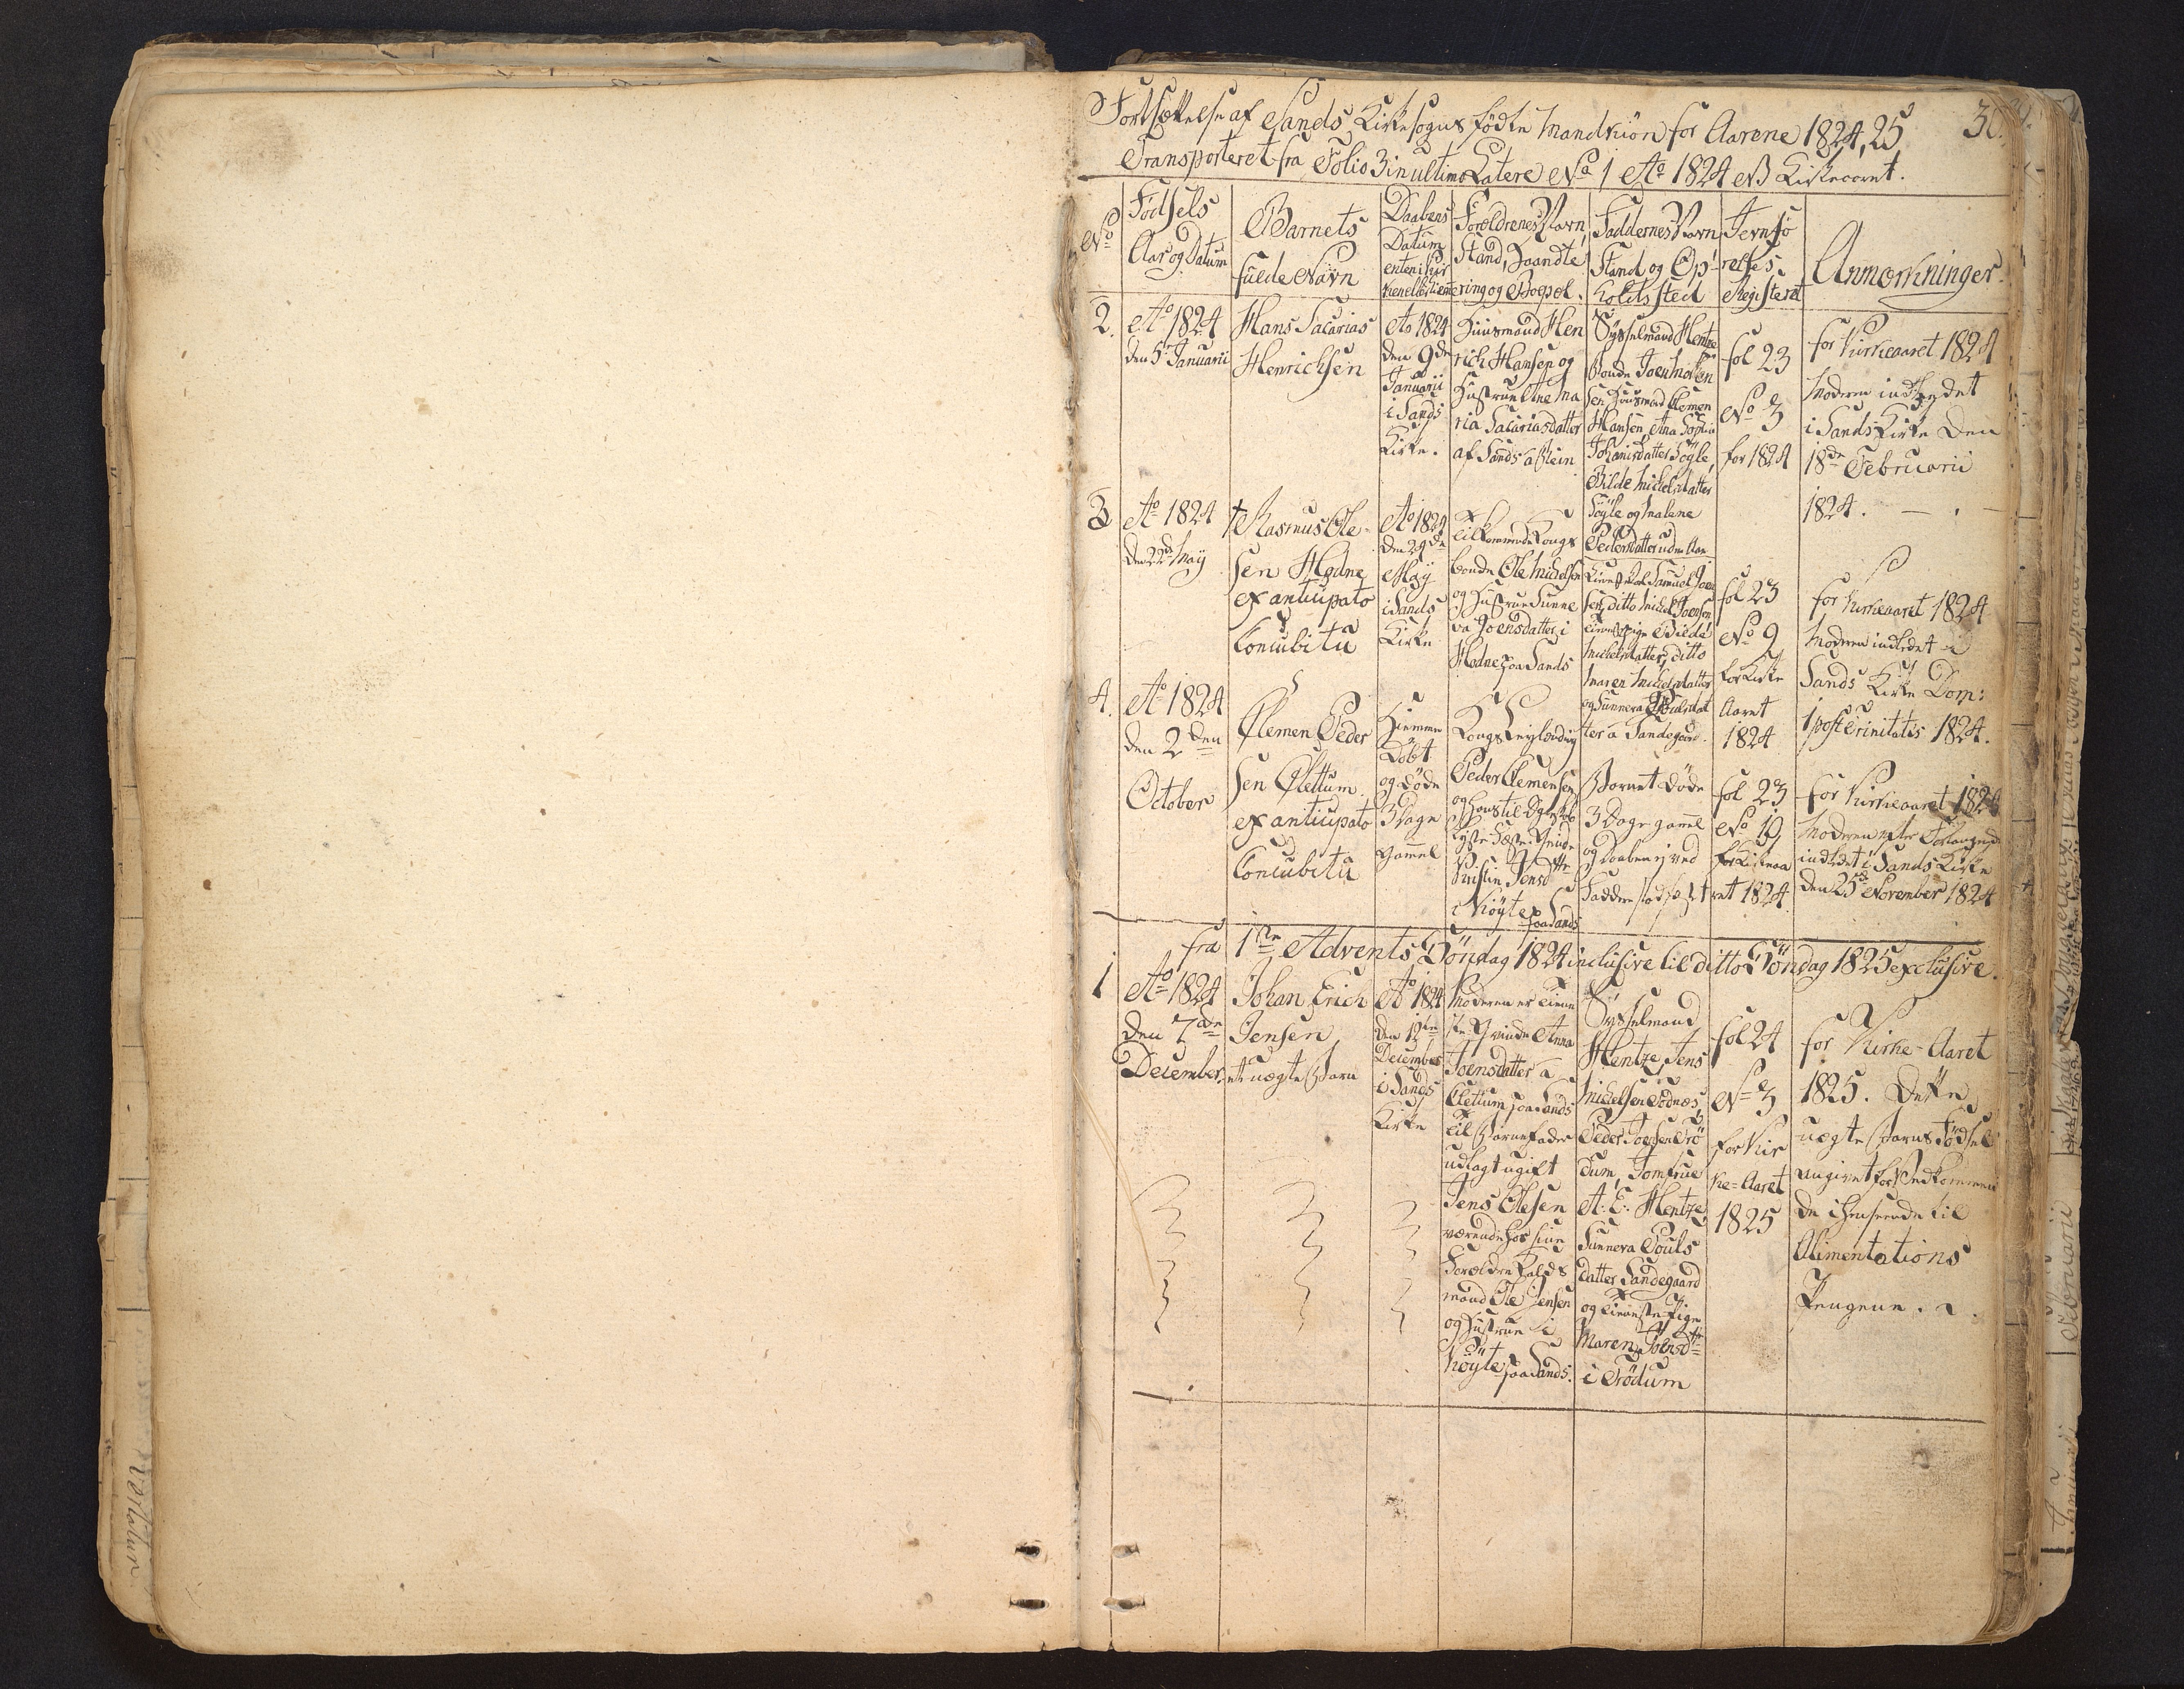 Fortsættelse af Sands Kirkesogns fødte Mandkiön for Aarene 1824, 25
Transporteret fra Folio 3 in ultimo Latere No 1 Ao 1824 Kirkeaaret.
No
Fødsels
Aar og Datum
Barnets
fulde Navn
Daabens
Datum
enten i Kir
ken eller hiemme
Forældrenes Navn,
Stand, Haandte
ring og Boepæl.
Faddernes Navn
Stand og Op-
holds sted
Jevnfø
relses
Registeret
Anmærkninger.
2.
Ao 1824
den 5te Januarii
Hans Sacarias
Henrichsen
Ao 1824
den 9de
Januarii
i Sands
Kirke.
Huusmand Hen
rich Hansen og
Hustrue Ane Ma
ria Sacariasdatter
af Sands
Sysselmand Hentze
Bonde Joen
sen Huusmand Clemen
Hansen, Ana Sophia
Johanisdatter Søgle,
Bilde Michelsdatter
Søgle og Malene
Pedersdatter
fol 23
No 3
for 1824
for Kirkeaaret 1824
Moderen indledet
i Sands Kirke den
18de Februarii
1824.
3
Ao 1824
den 22de Maij
† Rasmus Ole-
sen Madne
ex anticipato
Concubitu
Ao 1824
den 29de
Maij
i Sands
Kirke
Tilkommende Kongs
bonde Ole Michelsen
og Hustrue Sunne
va Joensdatter i
Madne paa Sands
Samuel Joen
sen, ditto Michel Joensen
Tieneste Pige Bilde
Michelsdatter, ditto
Maren Michelsdatter
og Sunneva Poulsdat
ter a Sandegaard.
fol 23
No 9
for Kirke
Aaret
1824
for Kirkeaaret 1824
Moderen indledet i
Sands Kirke Dom:
1 post Trinitatis 1824.
4.
Ao 1824
den 2den
October
Clemen Peder
sen Clettum
ex anticipato
Concubitu
Hiemme
Døbt
og døde
3 Dage
gammel
Kongs Leylænding
Peder Clemensen
og hans til Ægteskab
Kristin Jensdtr
i Nöyte paa Sands
Barnet døde
3 Dage gammel
og Daaben ej ved
Faddere
fol 23
No 10
for Kirkeaa
ret 1824.
for Kirkeaaret 1824
Moderen efter Forlangende
indledet i Sands Kirke
den 25de November 1824
fra 1te Advents Söndag 1824 inclusive til ditto Söndag 1825 exclusive.
1
Ao 1824
den 7de
December
Johan Erich
Jensen
et uægte Barn
Ao 1824
den 12te
December
i Sands
Kirke
Moderen er Tiene
ste Qvinde Anna
Joensdatter a
Clettum paa Sands
til Barnefader
udlagt ugift
Jens Olesen
værende hos sine
Forældre
mand Ole Jensen
og Hustrue i
Nöyte paa Sands.
Sysselmand
Hentze, Jens
Michelsen Todnæs,
Peder Joensen Trö
dum, Jomfrue
A: E: Hentze,
Sunneva Pouls
datter Sandegaard
og Tieneste Pige
Maren Joensdtr
i Trödum
fol 24
No 3
for Kir
ke-Aaret
1825
for Kirke-Aaret
1825. Dette
uægte Barns Fødsel
angivet for Vedkommen
de i henseende til
Alimentations
Pengene.